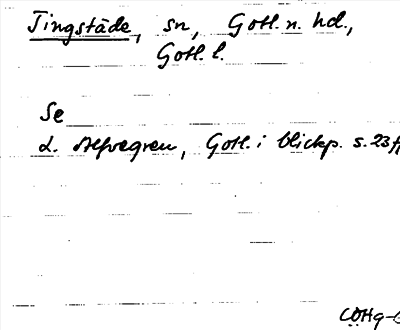 Tingstäde, sn, Gotl. n. hd.,
Gotl. l.
Se
L. Alfvegren, Gotl. i blickp. s. 23 ff